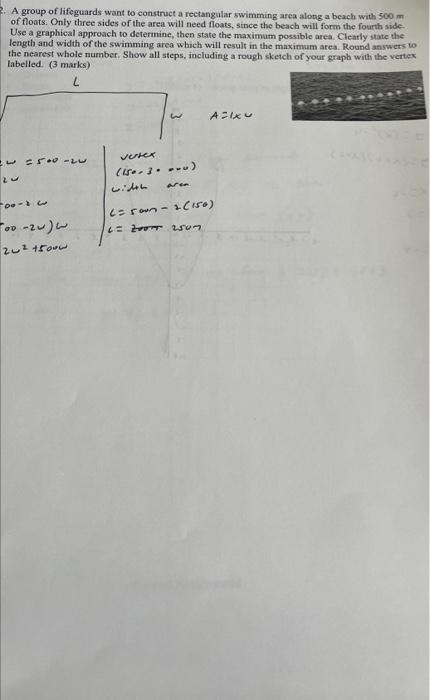 2. A group of lifeguards want to construct a rectangular swimming area along a beach with 500 m
of floats. Only three sides of the area will need floats, since the beach will form the fourth side.
Use a graphical approach to determine, then state the maximum possible area. Clearly state the
length and width of the swimming area which will result in the maximum area. Round answers to
the nearest whole number. Show all steps, including a rough sketch of your graph with the vertex
labelled. (3 marks)
L
w A=lxw
2w = 500 -2w
2w
00-2w
00 -2w)w
2w² +500w
vertex
width area
L= 500m - 2(150)
L= 250m